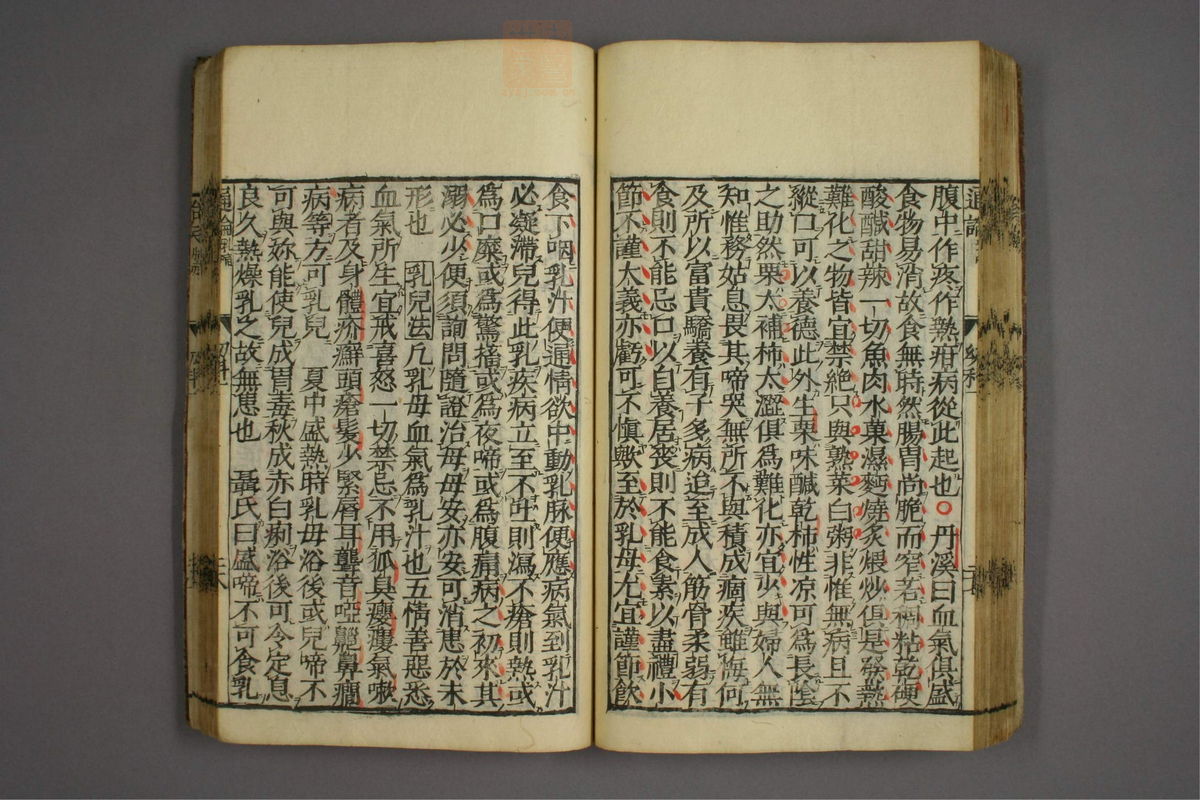 腹中作疼作熱疳病從此起也○丹溪曰血氣俱盛
食物易消故食無時然腸胃尚脆而窄若稠粘乾硬
酸鹹甜辣一切魚肉水菓濕麪燒炙煨炒俱是發熱
難化之物皆宜禁絕只與熟菜白粥非惟無病且不
縱口可以養德此外生栗味鹹乾柿性凉可為長陰
之助然栗太補柿太澀俱為難化亦宜少與婦人無
知惟務姑息畏其啼哭無所不與積成痼疾雖悔何
及所以富貴驕養有子多病迨至成人筋骨柔弱有
食則不能忌口以自養居喪則不能食素以盡禮小
節不謹大義亦虧可不慎歟至於乳母尤宜謹節飲
食下咽乳汁便通情欲中動乳脉便應病氣到乳汁
必凝滯兒得此乳疾病立至不吐則瀉不瘡則熱或
為口糜或為驚搐或為夜啼或為腹痛病之初來其
溺必少便須詢問隨證治母母安亦安可消患於未
形也 乳兒法凡乳母血氣為乳汁也五情善惡悉
血氣所生宜戒喜怒一切禁忌不用狐臭癭瘻氣嗽
病者及身體疥癬頭瘡髮少緊唇耳聾音啞齆鼻癲
病等方可乳兒 夏中盛熱時乳母浴後或兒啼不
可與妳能使兒成胃毒秋成赤白痢浴後可令定息
良久熱燥乳之故無患也 聶氏曰盛啼不可食乳